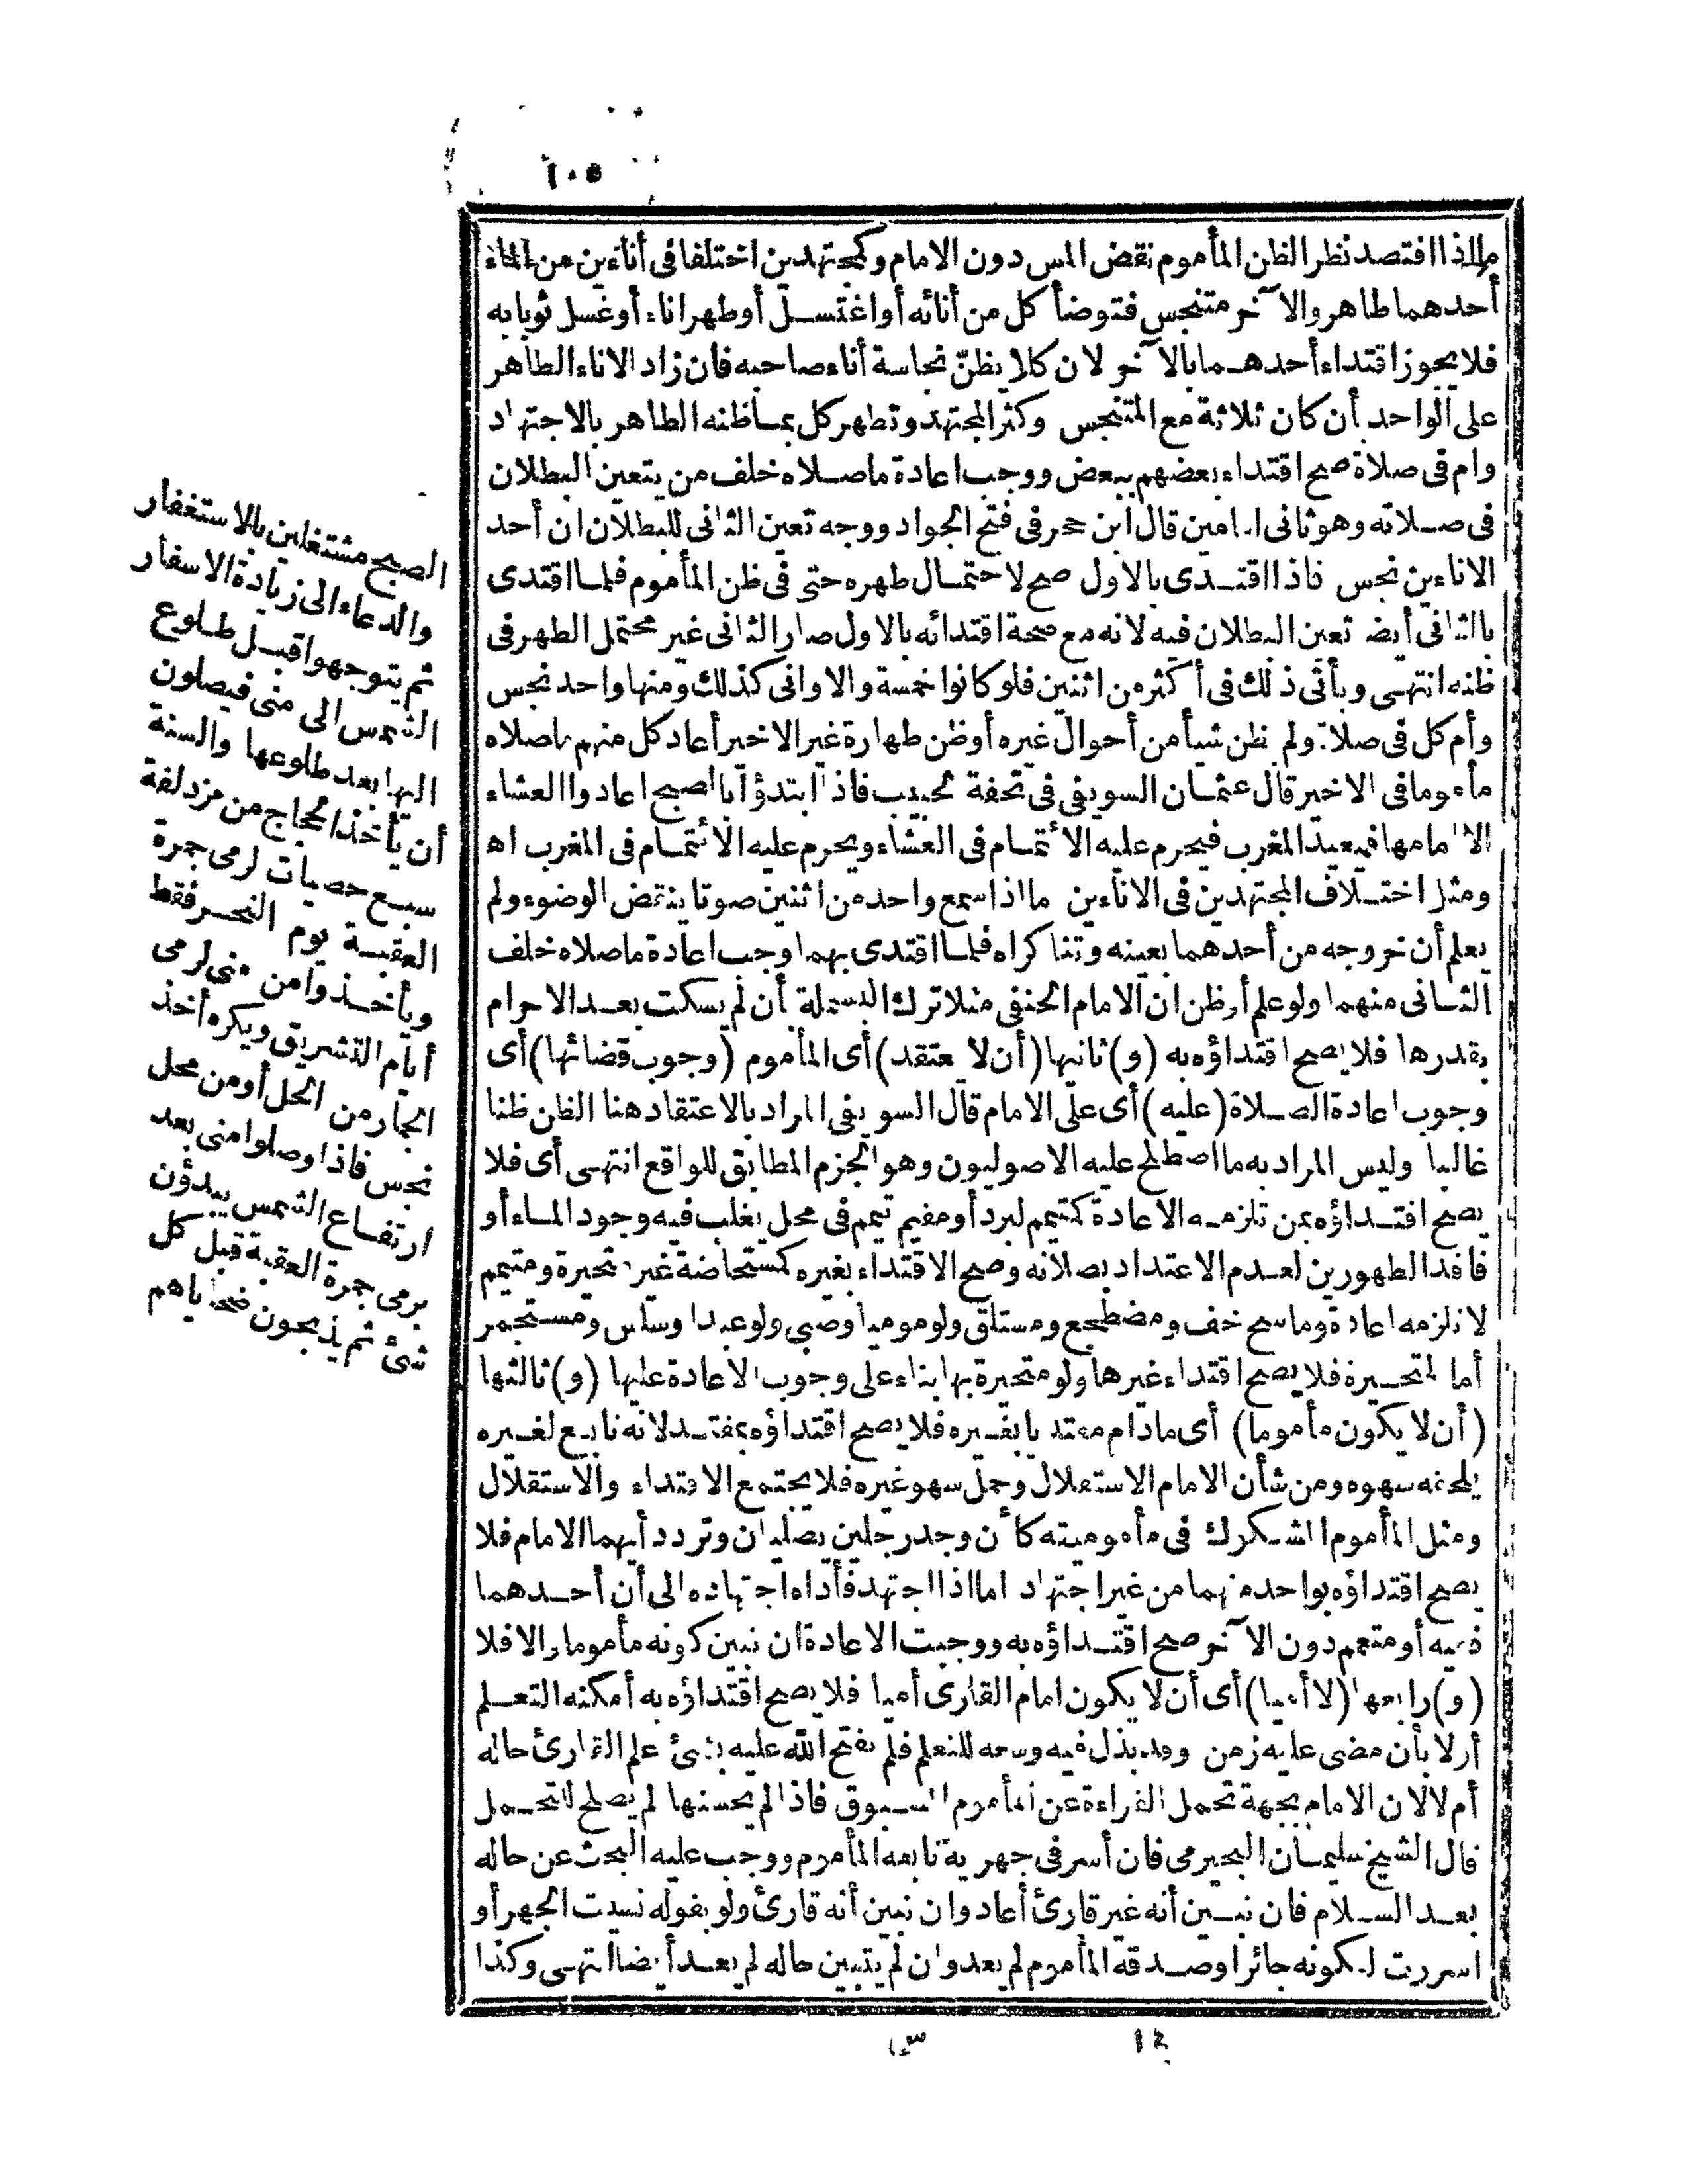 ١٠٥
ما اذا افتصد نظر الظن المأموم نقض المس دون الامام وكمجتهدين اختلفا فى أناءين من الماء
أحدهما طاهر والآخر متنجس فتوضأ كل من أنائه أو اغتسل أو طهر اناء أو غسل ثوبا به
فلا يجوز اقتداء أحدهما بالآخر لان كلا يظنّ نجاسة أناء صاحبه فان زاد الاناء الطاهر
على الواحد بأن كان ثلاثة مع المتنجس وكثر المجتهد وتطهر كل بما ظنه الطاهر بالاجتهاد
وام فى صلاة صح اقتداء بعضهم ببعض ووجب اعادة ما صلاه خلف من يتعين البطلان
فى صلاته وهو ثانى امامين قال ابن حجر فى فتح الجواد ووجه تعين الثانى للبطلان ان أحد
الاناءين نجس فاذا اقتدى بالاول صح لاحتمال طهره حتى فى ظن المأموم فلما اقتدى
بالثانى أيضا تعين البطلان فيه لانه مع صحة اقتدائه بالاول صار الثانى غير محتمل الطهر فى
ظنه انتهى ويأتى ذلك فى أكثر من اثنين فلو كانوا خمسة والاوانى كذلك ومنها واحد نجس
وأم كل فى صلاة ولم يظن شيأ من أحوال غيره أو ظن طهارة غير الاخير أعاد كل منهم ما صلاه
مأموما فى الاخير قال عثمان السويفى فى تحفة الحبيب فاذا ابتدؤا بالصبح اعادوا العشاء
الا امامها فيعيد المغرب فيحرم عليه الائتمام فى العشاء ويحرم عليه الائتمام فى المغرب اه
ومثل اختلاف المجتهدين فى الاناءين ما اذا سمع واحد من اثنين صوتا ينقض الوضوء ولم
يعلم أن خروجه من أحدهما بعينه وتناكراه فلما اقتدى بهما وجب اعادة ما صلاه خلف
الثانى منهما ولو علم أو ظن ان الامام الحنفى مثلا ترك البسملة بأن لم يسكت بعد الاحرام
بقدرها فلا يصح اقتداؤه به (و) ثانيها (أن لا يعتقد) أى المأموم (وجوب قضائها) أى
وجوب اعادة الصلاة (عليه) أى على الامام قال السويفى المراد بالاعتقاد هنا الظن ظنا
غالبا وليس المراد به ما اصطلح عليه الاصوليون وهو الجزم المطابق للواقع انتهى أى فلا
يصح اقتداؤه بمن تلزمه الاعادة كمتيمم لبرد أو مقيم تيمم فى محل يغلب فيه وجود الماء أو
فاقد الطهورين لعدم الاعتداد بصلاته وصح الاقتداء بغيره كمستحاضة غير متحيرة ومتيمم
لا تلزمه اعادة وماسح خف ومضطجع ومستلق ولو موميا وصبى ولو عبدا وسلس ومستجمر
أما المتحيرة فلا يصح اقتداء غيرها ولو متحيرة بها بناء على وجوب الاعادة عليها (و) ثالثها
(أن لا يكون مأموما) أى مادام مقتديا بغيره فلا يصح اقتداؤه بمقتد لانه تابع لغيره
يلحقه سهوه ومن شأن الامام الاستقلال وحمل سهو غيره فلا يجتمع الاقتداء والاستقلال
ومثل المأموم المشكوك فى مأموميته كأن وجد رجلين يصليان وتردد أيهما الامام فلا
يصح اقتداؤه بواحد منهما من غير اجتهاد اما اذا اجتهد فأداه اجتهاده الى أن أحدهما
فقيه أو متعمم دون الآخر صح اقتداؤه به ووجبت الاعادة ان تبين كونه مأموما والا فلا
(و) رابعها (لا أميا) أى أن لا يكون امام القارى أميا فلا يصح اقتداؤه به أمكنه التعلم
أولا بأن مضى عليه زمن وقد بذل فيه وسعه للتعلم فلم يفتح الله عليه بشئ علم القارئ حاله
أم لا لان الامام بجهة تحمل القراءة عن المأموم المسبوق فاذا لم يحسنها لم يصلح للتحمل
قال الشيخ سليمان البجيرمى فان أسر فى جهرية تابعه المأموم ووجب عليه البحث عن حاله
بعد السلام فان تبين أنه غير قارئ أعاد وان تبين أنه قارئ ولو بقوله نسيت الجهر أو
اسررت لكونه جائزا وصدقه المأموم لم يعد وان لم يتبين حاله لم يعد أيضا انتهى وكذا
الصبح مشتغلين بالاستغفار
والدعاء الى زيادة الاسفار
ثم يتوجهوا قبل طلوع
الشمس الى منى فيصلون
اليها بعد طلوعها والسنة
أن يأخذ الحجاج من مزدلفة
سبع حصيات لرمى جمرة
العقبة يوم النحر فقط
ويأخذوا من منى لرمى
أيام التشريق ويكره أخذ
الجمار من الحل أو من محل
نجس فاذا وصلوا منى بعد
ارتفاع الشمس يبدؤن
برمى جمرة العقبة قبل كل
شئ ثم يذبحون ضحاياهم